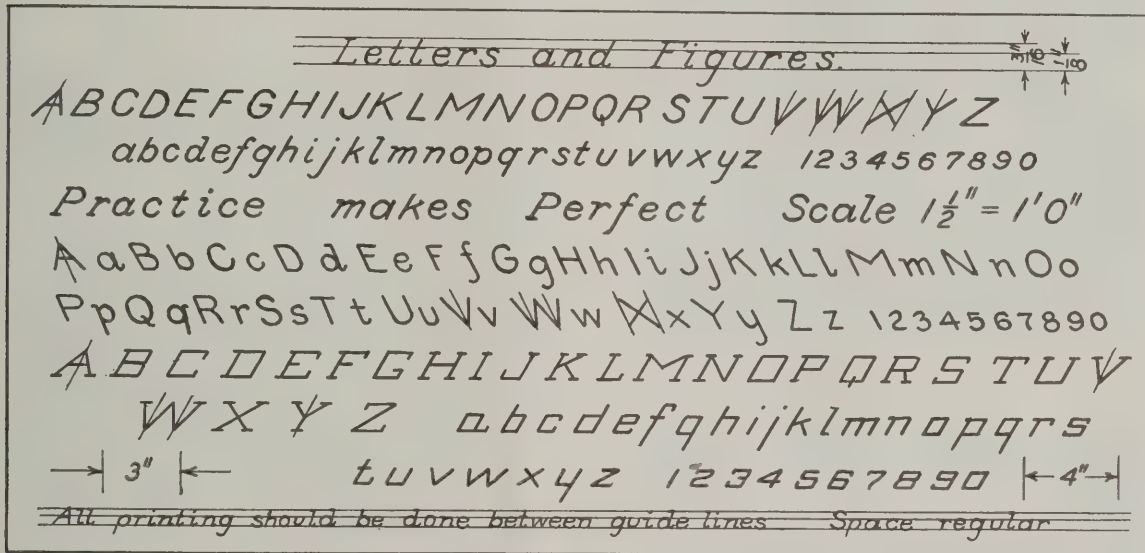 Letters and Figures. 3/16" 1/8"
ABCDEFGHIJKLMNOPQRSTUVWXYZ
abcdefghijklmnopqrstuvwxyz 1234567890
Practice makes Perfect Scale 1 1/2" = 1'0"
AaBbCcDdEeFfGgHhIiJjKkLlMmNnOo
PpQqRrSsTtUuVvWwXxYyZz 1234567890
ABCDEFGHIJKLMNOPQRSTUV
WXYZ abcdefghijklmnopqrs
3" tuvwxyz 1234567890 4"
All printing should be done between guide lines Space regular